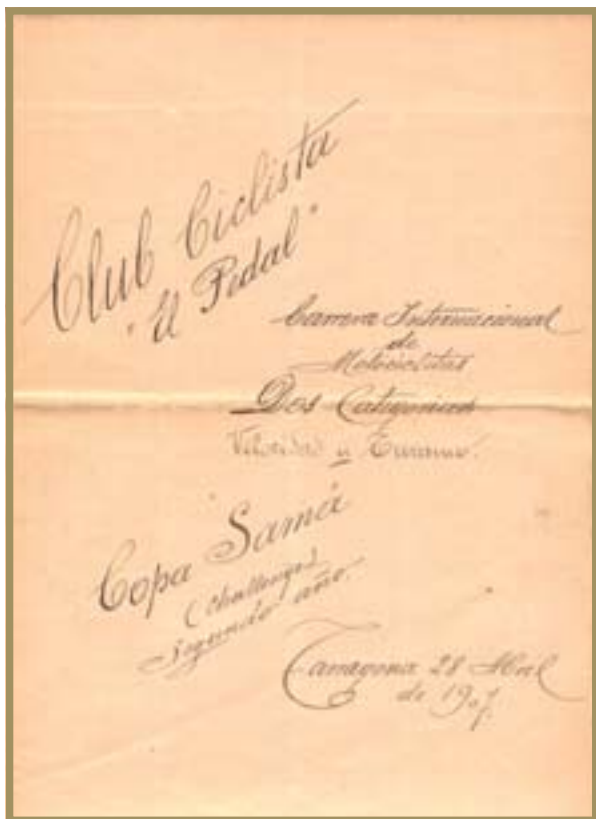 Club Ciclista
"El Pedal"
Carrera Internacional
de
Motocicletas
Dos Categorias
Velocidad y Turismo.
Copa "Samá"
(Challenge)
Segundo año.
Tarragona 28 Abril
de 1907.